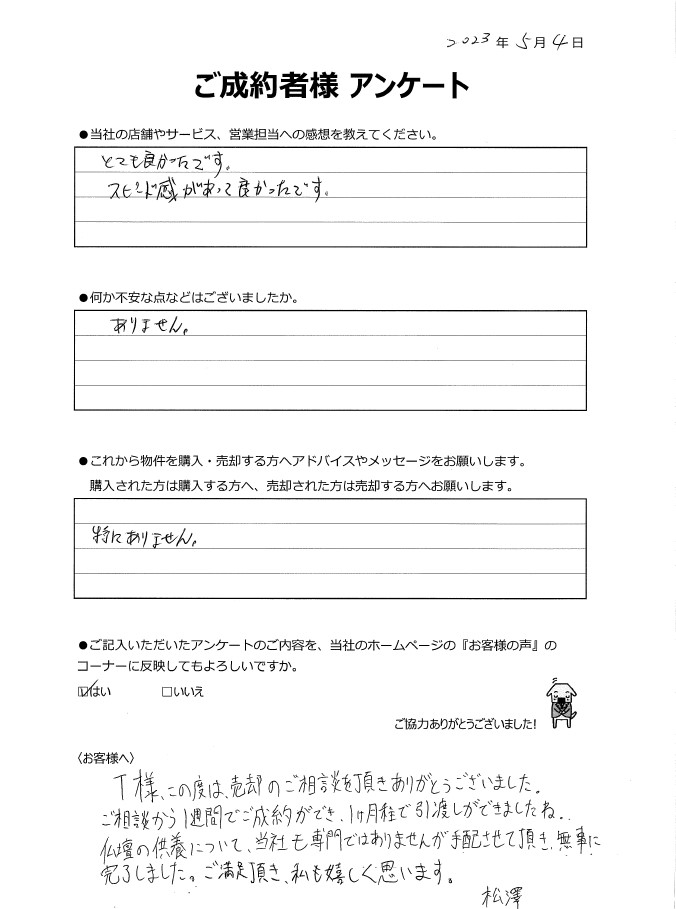 2023年5月4日
ご成約者様 アンケート
●当社の店舗やサービス、営業担当への感想を教えてください。
とても良かったです。
スピード感があって良かったです。
●何か不安な点などはございましたか。
ありません。
●これから物件を購入・売却する方へアドバイスやメッセージをお願いします。
購入された方は購入する方へ、売却された方は売却する方へお願いします。
特にありません。
●ご記入いただいたアンケートのご内容を、当社のホームページの『お客様の声』の
コーナーに反映してもよろしいですか。
☑はい □いいえ
ご協力ありがとうございました!
〈お客様へ〉
T様、この度は、売却のご相談を頂きありがとうございました。
ご相談から1週間でご成約ができ、1ヶ月程で引渡しができましたね。
仏壇の供養について、当社も専門ではありませんが手配させて頂き、無事に
完了しました。ご満足頂き、私も嬉しく思います。
松澤